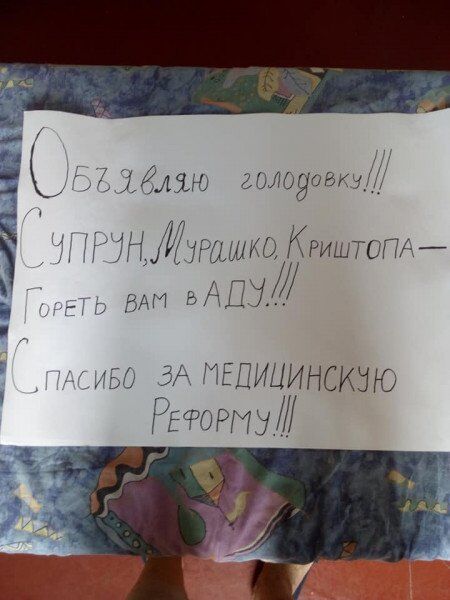 Объявляю голодовку!!!
Супрун, Мурашко, Криштопа —
Гореть вам в АДУ!!!
Спасибо за медицинскую
Реформу!!!